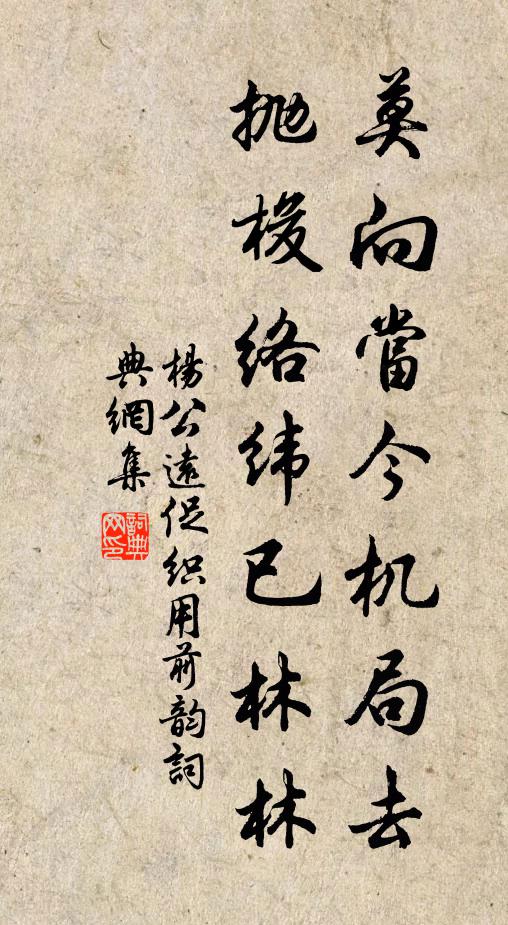 莫向當今机局去
抛梭络纬已林林
楊公遠促织用前韵詞
典網集
詞典网印